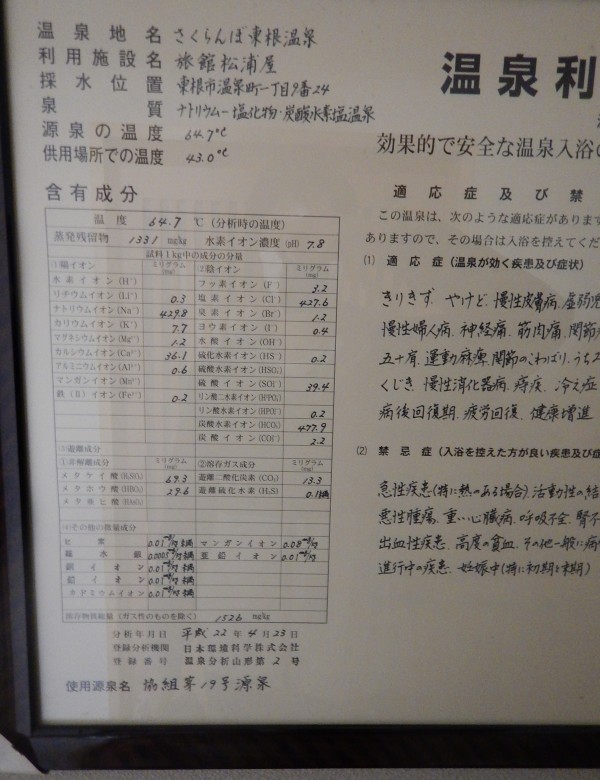 温泉地名 さくらんぼ東根温泉
利用施設名 旅館松浦屋
採水位置 東根市温泉町一丁目9番24
泉質 ナトリウム-塩化物・炭酸水素塩温泉
源泉の温度 64.7℃
供用場所での温度 43.0℃
含有成分
温度 64.7 ℃(分析時の温度)
蒸発残留物 1331 mg/kg 水素イオン濃度(pH) 7.8
試料1kg中の成分の分量
(1)陽イオン ミリグラム(mg) (2)陰イオン ミリグラム(mg)
水素イオン(H⁺) フッ素イオン(F⁻) 3.2
リチウムイオン(Li⁺) 0.3 塩素イオン(Cl⁻) 427.6
ナトリウムイオン(Na⁺) 429.8 臭素イオン(Br⁻) 1.2
カリウムイオン(K⁺) 7.7 ヨウ素イオン(I⁻) 0.4
マグネシウムイオン(Mg²⁺) 1.2 水酸イオン(OH⁻)
カルシウムイオン(Ca²⁺) 36.1 硫化水素イオン(HS⁻) 0.2
アルミニウムイオン(Al³⁺) 0.6 硫酸水素イオン(HSO₄⁻)
マンガンイオン(Mn²⁺) 硫酸イオン(SO₄²⁻) 39.4
鉄(Ⅱ)イオン(Fe²⁺) 0.2 リン酸二水素イオン(H₂PO₄⁻)
リン酸水素イオン(HPO₄²⁻) 0.2
炭酸水素イオン(HCO₃⁻) 477.9
炭酸イオン(CO₃²⁻) 2.2
(3)遊離成分
①非解離成分 ミリグラム(mg) ②溶存ガス成分 ミリグラム(mg)
メタケイ酸(H₂SiO₃) 69.3 遊離二酸化炭素(CO₂) 13.3
メタホウ酸(HBO₂) 29.6 遊離硫化水素(H₂S) 0.1未満
メタ亜ヒ酸(HAsO₂)
(4)その他の微量成分
ヒ素 マンガンイオン
総水銀 亜鉛イオン
銅イオン
鉛イオン
カドミウムイオン
溶存物質総量(ガス性のものを除く) 1526 mg/kg
分析年月日 平成22年4月23日
登録分析機関 日本環境科学株式会社
登録番号 温泉分析山形第2号
使用源泉名 協組第19号源泉
温泉利
効果的で安全な温泉入浴の
適応症及び禁
この温泉は、次のような適応症があります
ありますので、その場合は入浴を控えてくだ
(1) 適応症(温泉が効く疾患及び症状)
きりきず、やけど、慢性皮膚病、虚弱児
慢性婦人病、神経痛、筋肉痛、関節
五十肩、運動麻痺、関節のこわばり、うちみ
くじき、慢性消化器病、痔疾、冷え症
病後回復期、疲労回復、健康増進
(2) 禁忌症(入浴を控えた方が良い疾患及び症
急性疾患(特に熱のある場合)、活動性の結
悪性腫瘍、重い心臓病、呼吸不全、腎不
出血性疾患、高度の貧血、その他一般に病
進行中の疾患、妊娠中(特に初期と末期)